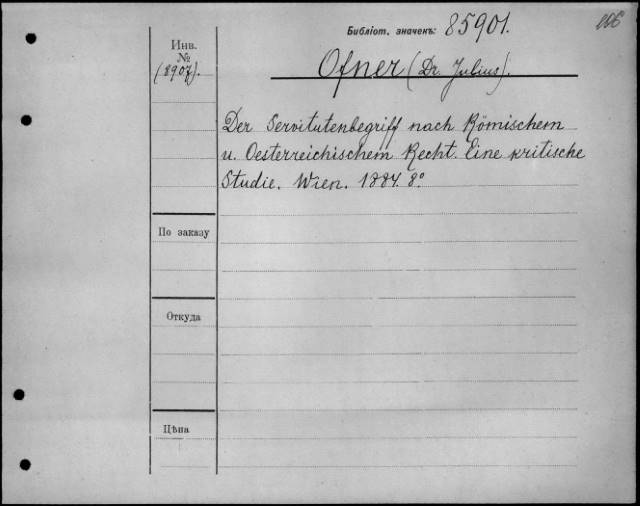 Библіот. значекъ: 85901.
166
Инв.
№
(8907).
Ofner (Dr. Julius).
Der Servitutenbegriff nach Römischem
u. Oesterreichischem Recht. Eine kritische
Studie. Wien. 1884. 8°
По заказу
Откуда
Цѣна